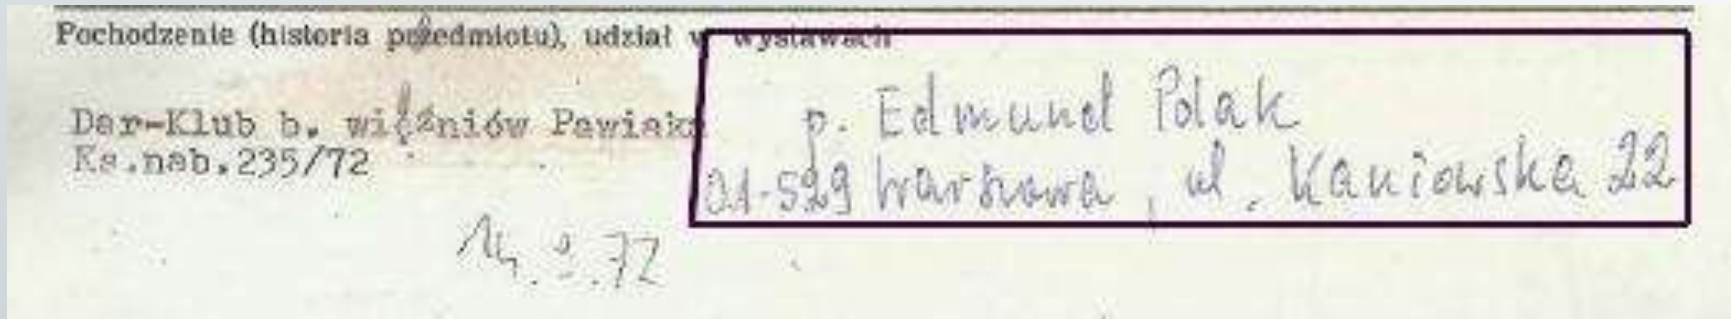 Pochodzenie (historia przedmiotu), udział w wystawach
Dar-Klub b. więźniów Pawiaka
Ks.nab.235/72
p. Edmund Polak
01-529 Warszawa, ul. Kaniowska 22
14. 72